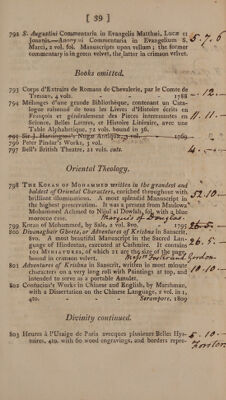 [ 39 ]
792 S. Augustini Commentaria in Evangelia Matthæi, Lucæ et
Joannis—Anonymi Commentaria in Evangelium S.
Marci, 2 vol. fol. Manuscripts upon vellum; the former
commentary is in green velvet, the latter in crimson velvet.
5.7.6
Books omitted.
793 Corps d'Extraits de Romans de Chevalerie, par le Comte de
Tressan, 4 vols. 1788
12
794 Mélanges d'une grande Bibliothèque, contenant un Catalogue
raisonné de tous les Livres d'Histoire écrits en
François et généralement des Pieces interessantes en
Sciences, Belles Lettres, et Histoire Littéraire, avec une
Table Alphabetique, 72 vols. bound in 36.
11.11
795 Sir J. Harrington's Nugæ Antiquæ, 1769
796 Peter Pindar's Works, 3 vol.
797 Bell's British Theatre, 21 vols. cuts
4
Oriental Theology.
798 The Koran of Mohammed written in the grandest and
boldest of Oriental Characters, enriched throughout with
brilliant illuminations. A most splendid Manuscript in
the highest preservation. It was a present from Moulowa
Mohammed Achmed to Nijul al Dowlah, fol. with a blue
morocco case. Marquis of Douglas.
52.10
799 Koran of Mohammed, by Sale, 2 vol. 8vo. 1795
26.5
800 Divanagiuie Gheeta, or Adventures of Krishna in Sanscrit,
8vo. A most beautiful Manuscript in the Sacred Language
of Hindostan, executed at Cashmire. It contains
101 Miniatures, of which 21 are the size of the page,
bound in crimson velvet. Messrs Foster and Gordon
26.5
801 Adventures of Krishna in Sanscrit, written in most minute
characters on a very long roll with Paintings at top, and
intended to serve as a portable Amulet.
10.10
802 Confucius's Works in Chinese and English, by Marshman,
with a Dissertation on the Chinese Language, 2 vol. in 1,
4to. Serampore, 1809
Divinity continued.
803 Heures à l'Usaige de Paris avecques plusieurs Belles Hystoires,
4to. with 60 wood engravings, and borders repre-
5.10